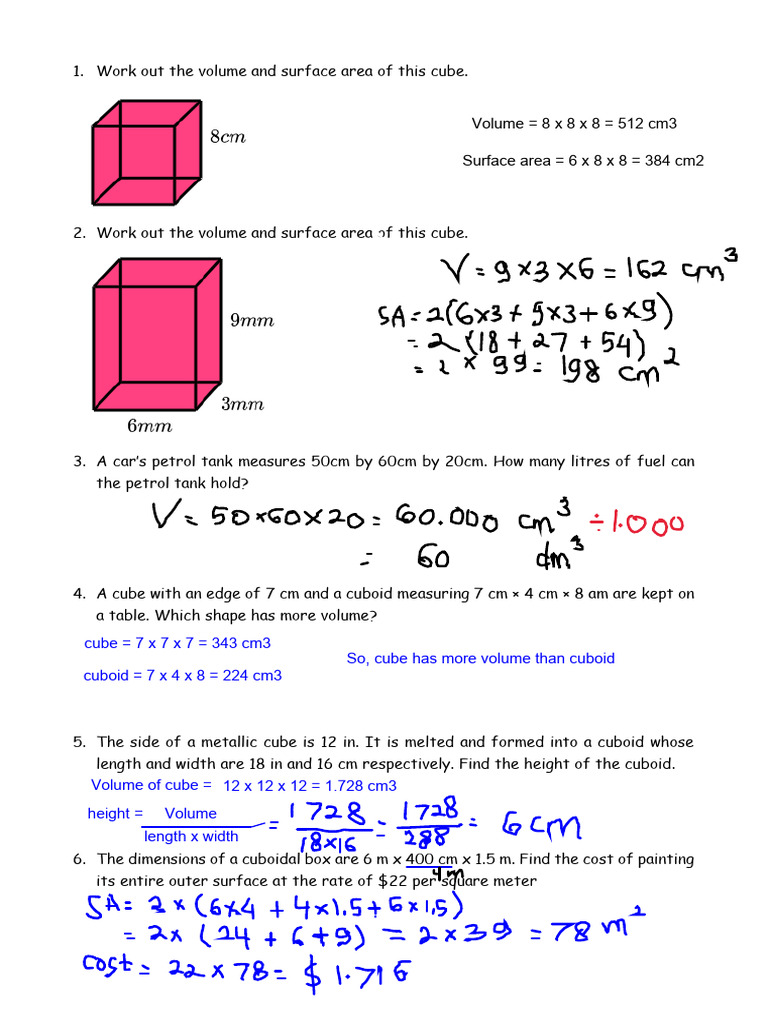 1. Work out the volume and surface area of this cube.
8cm
Volume = 8 x 8 x 8 = 512 cm3
Surface area = 6 x 8 x 8 = 384 cm2
2. Work out the volume and surface area of this cube.
9mm
3mm
6mm
V = 9 x 3 x 6 = 162 cm³
SA = 2(6x3 + 9x3 + 6x9)
= 2 (18 + 27 + 54)
= 2 x 99 = 198 cm²
3. A car's petrol tank measures 50cm by 60cm by 20cm. How many litres of fuel can
the petrol tank hold?
V = 50x60x20 = 60.000 cm³ ÷1.000
= 60 dm³
4. A cube with an edge of 7 cm and a cuboid measuring 7 cm × 4 cm × 8 am are kept on
a table. Which shape has more volume?
cube = 7 x 7 x 7 = 343 cm3
So, cube has more volume than cuboid
cuboid = 7 x 4 x 8 = 224 cm3
5. The side of a metallic cube is 12 in. It is melted and formed into a cuboid whose
length and width are 18 in and 16 cm respectively. Find the height of the cuboid.
Volume of cube = 12 x 12 x 12 = 1.728 cm3
height = Volume / length x width = 1728 / 18x16 = 1728 / 288 = 6 cm
6. The dimensions of a cuboidal box are 6 m x 400 cm x 1.5 m. Find the cost of painting
4m
its entire outer surface at the rate of $22 per square meter
SA = 2 x (6x4 + 4x1.5 + 6x1.5)
= 2x (24 + 6+9) = 2x39 = 78 m²
cost = 22 x 78 = $ 1.716